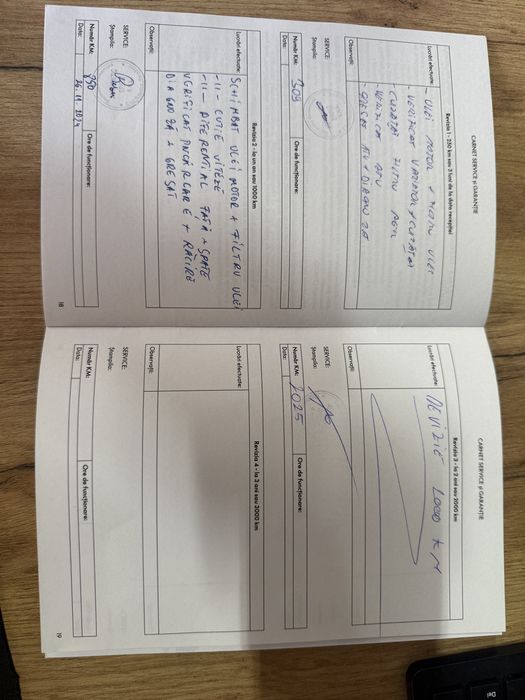 CARNET SERVICE și GARANȚIE
Revizia 1 - 250 km sau 3 luni de la data recepției
Lucrări efectuate:
ULEI MOTOR + FILTRU ULEI
VERIFICAT VARIATOR + CURĂȚAT
CURĂȚAT FILTRU AER
VERIFICAT ATV
GRESAT ATV + DIAGNOZA
Observații:
SERVICE:
Ștampila:
Număr KM: 309
Ore de funcționare:
Data:
Revizia 2 - la un an sau 1000 km
Lucrări efectuate:
SCHIMBAT ULEI MOTOR + FILTRU ULEI
-11- CUTIE VITEZE
-11- DIFERENȚIAL FAȚĂ + SPATE
VERIFICAT ÎNCĂRCARE + RĂCIRE
DIAGNOZĂ + GRESAT
Observații:
SERVICE:
Ștampila:
Număr KM: 890
Ore de funcționare:
Data: 26.11.2024
18
CARNET SERVICE și GARANȚIE
Revizia 3 - la 2 ani sau 2000 km
Lucrări efectuate:
REVIZIE 2000 KM
Observații:
SERVICE:
Ștampila:
Număr KM: 2025
Ore de funcționare:
Data:
Revizia 4 - la 3 ani sau 3000 km
Lucrări efectuate:
Observații:
SERVICE:
Ștampila:
Număr KM:
Ore de funcționare:
Data:
19